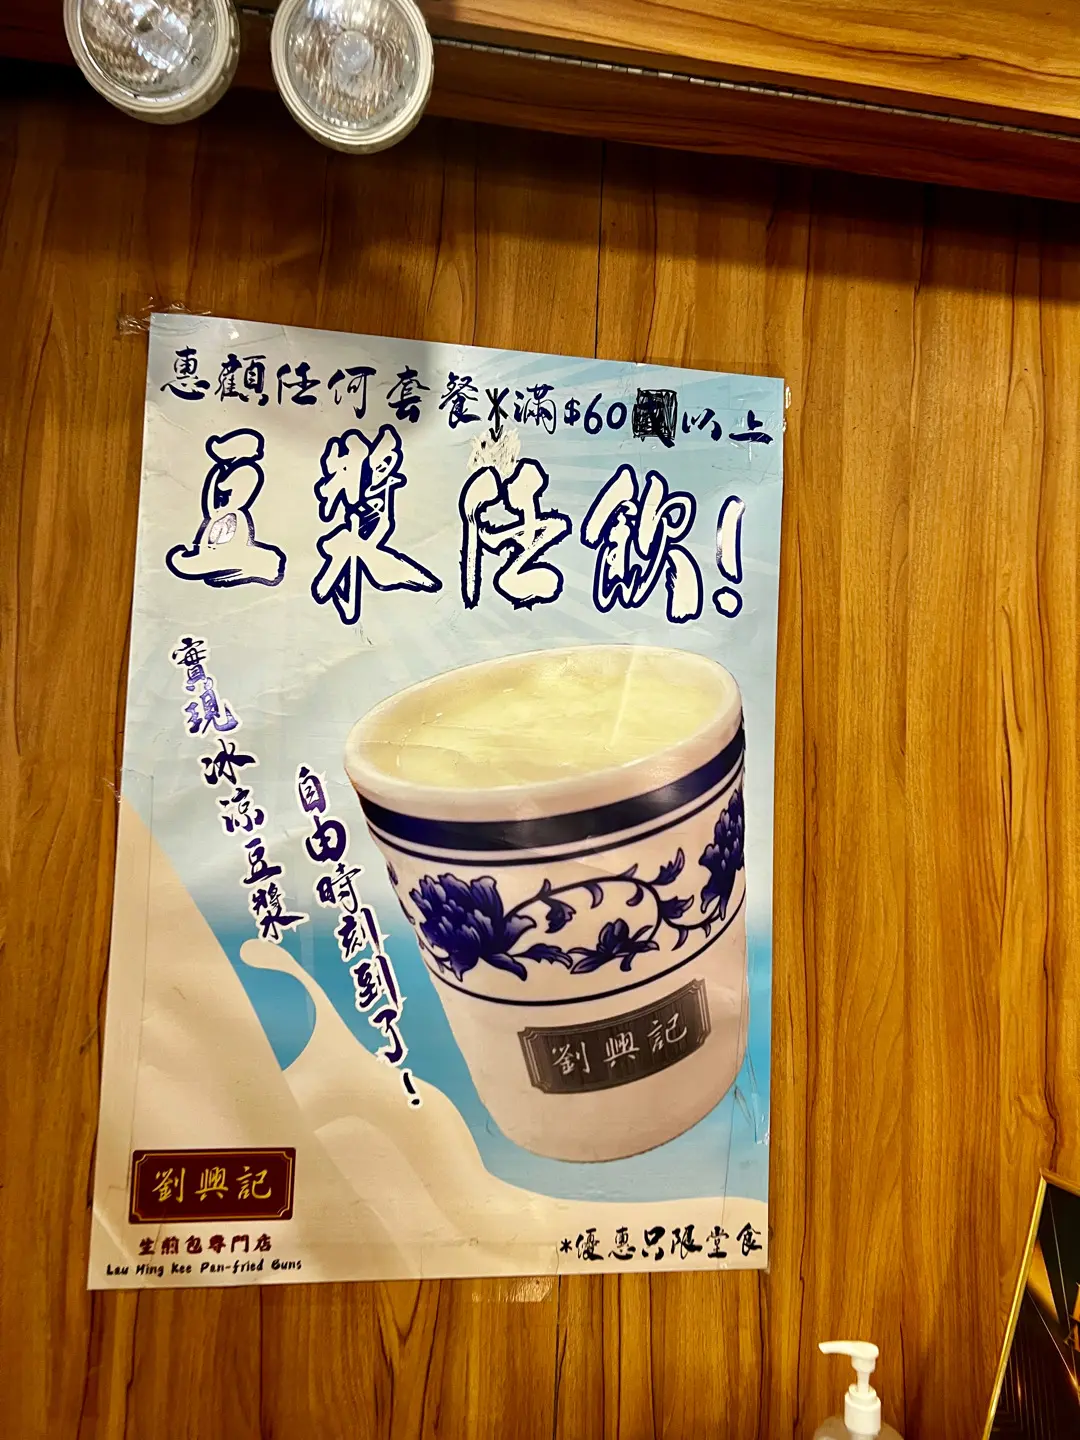 惠顧任何套餐*滿$60以上
豆漿任飲!
實現冰涼豆漿
自由時刻到了!
劉興記
劉興記
生煎包專門店
Lau Hing Kee Pan-fried Buns
*優惠只限堂食